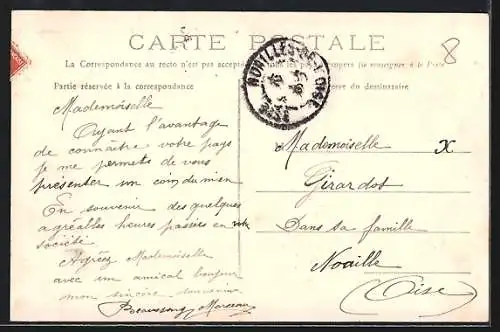 CARTE POSTALE
8
La Correspondance au recto n'est pas acceptée par tous les pays étrangers (se renseigner à la Poste)
Partie réservée à la correspondance
Adresse du destinataire
NOAILLES OISE
Mademoiselle
Ayant l'avantage
de connaître votre pays
je me permets de vous
présenter un coin du mien
En souvenir des quelques
agréables heures passées en votre
société
Agréez Mademoiselle
avec un amical bonjour
mon sincère souvenir
Marceau
Mademoiselle
X
Girardot
Dans sa famille
Noaille
(Oise)